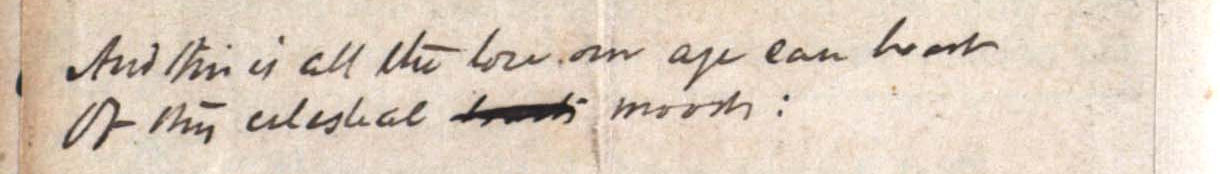 And this is all the lore our age can boast
Of thy celestial moods: